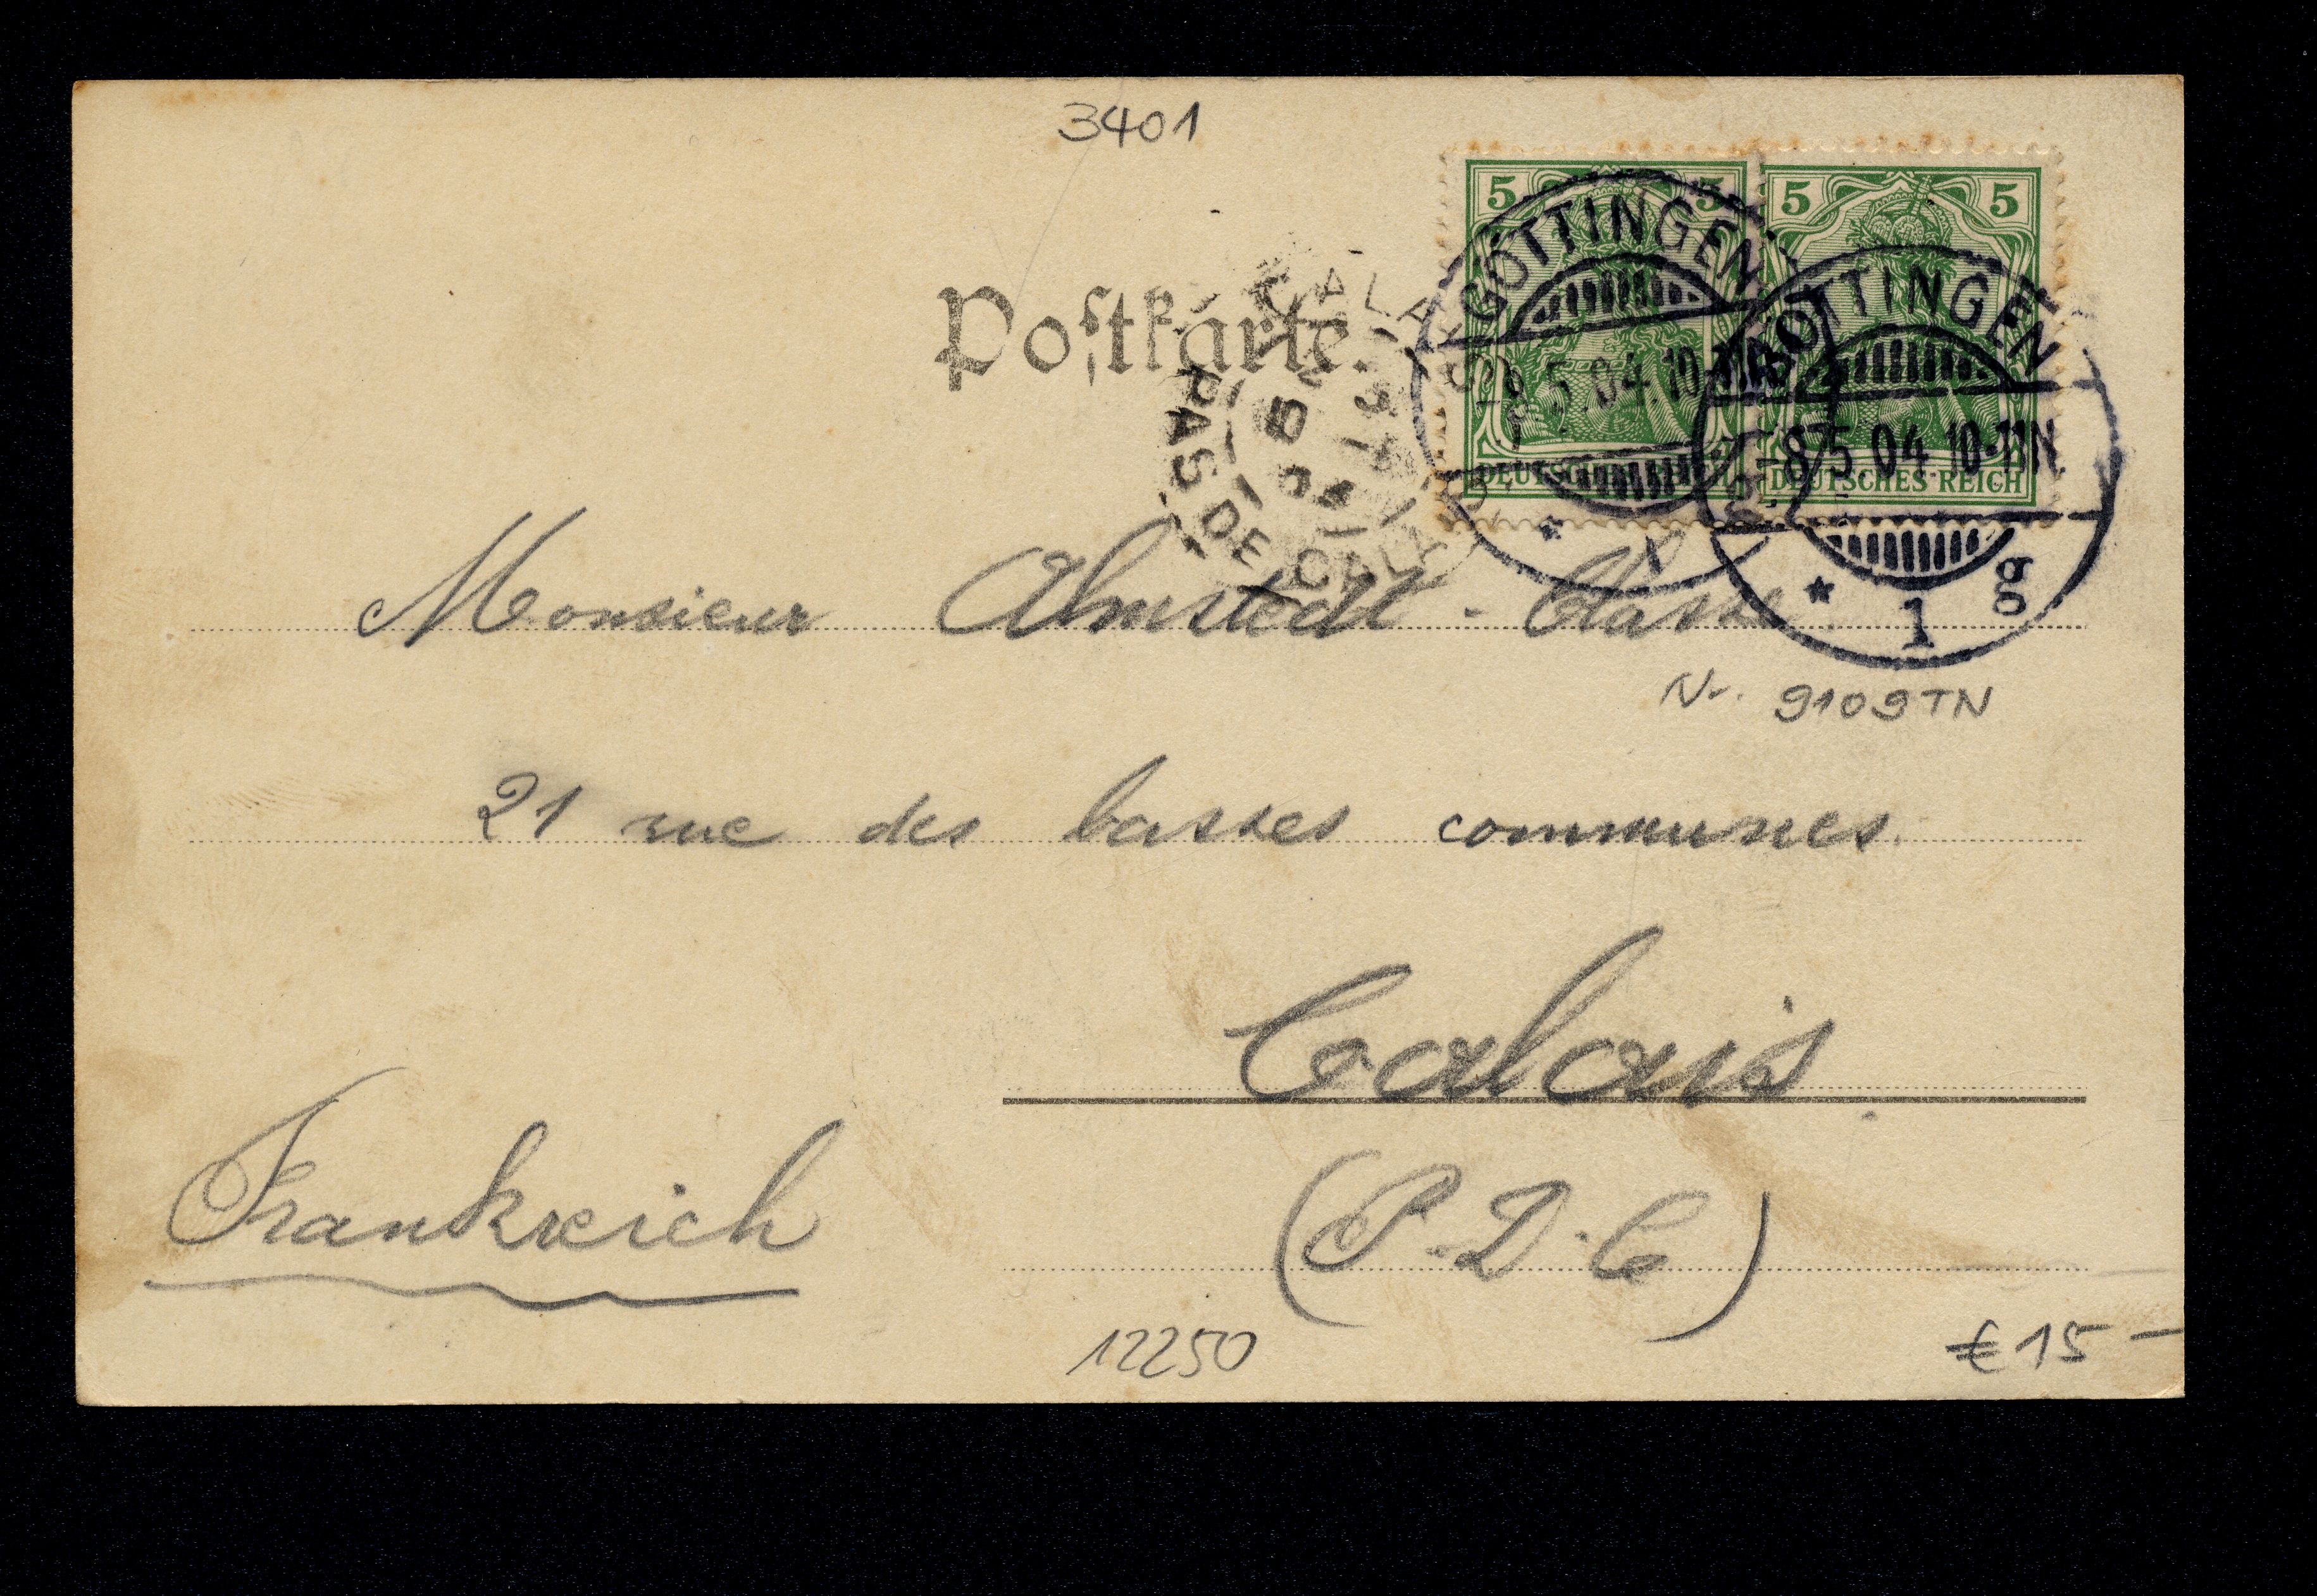 3401
5 5 5 5
GÖTTINGEN GÖTTINGEN
5.04.10-11N 8 5 04 10-11N
DEUTSCHES REICH DEUTSCHES REICH
* 1 g
Postkarte.
CALAIS
PAS DE CALAIS
Monsieur Almstedt -
Nr. 9109TN
21 rue des basses communes
Calais
(P.D.C)
Frankreich
12250
€15-